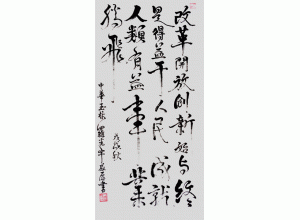 改革開放創新始与終
是得益于人民成就
人類有益事業
騰飛
戊戌秋
中華